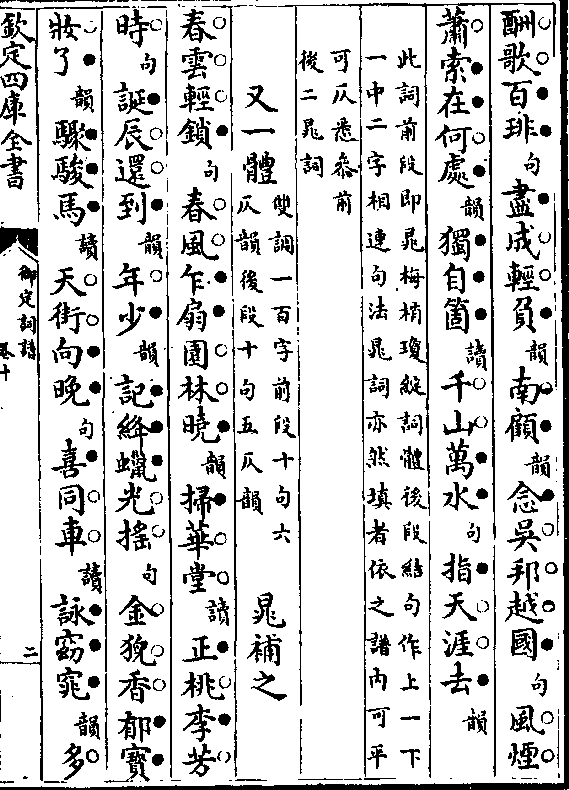 酬歌百琲句盡成輕負韻南顧韻念吳邦越國句風煙
蕭索在何處韻獨自箇讀千山萬水句指天涯去韻
此詞前段即晁梅梢瓊綻詞體後段結句作上一下
一中二字相連句法晁詞亦然填者依之譜内可平
可仄悉叅前
後二晁詞
又一體 雙調一百字前段十句六
仄韻後段十句五仄韻 晁補之
春雲輕鎖句春風乍扇園林曉韻掃華堂讀正桃李芳
時句誕辰還到韻年少韻記絳蠟光揺句金猊香郁寳
妝了韻驟駿馬讀天街向晚句喜同車讀詠窈窕韻多
欽定四庫全書
御定詞譜
卷十
二